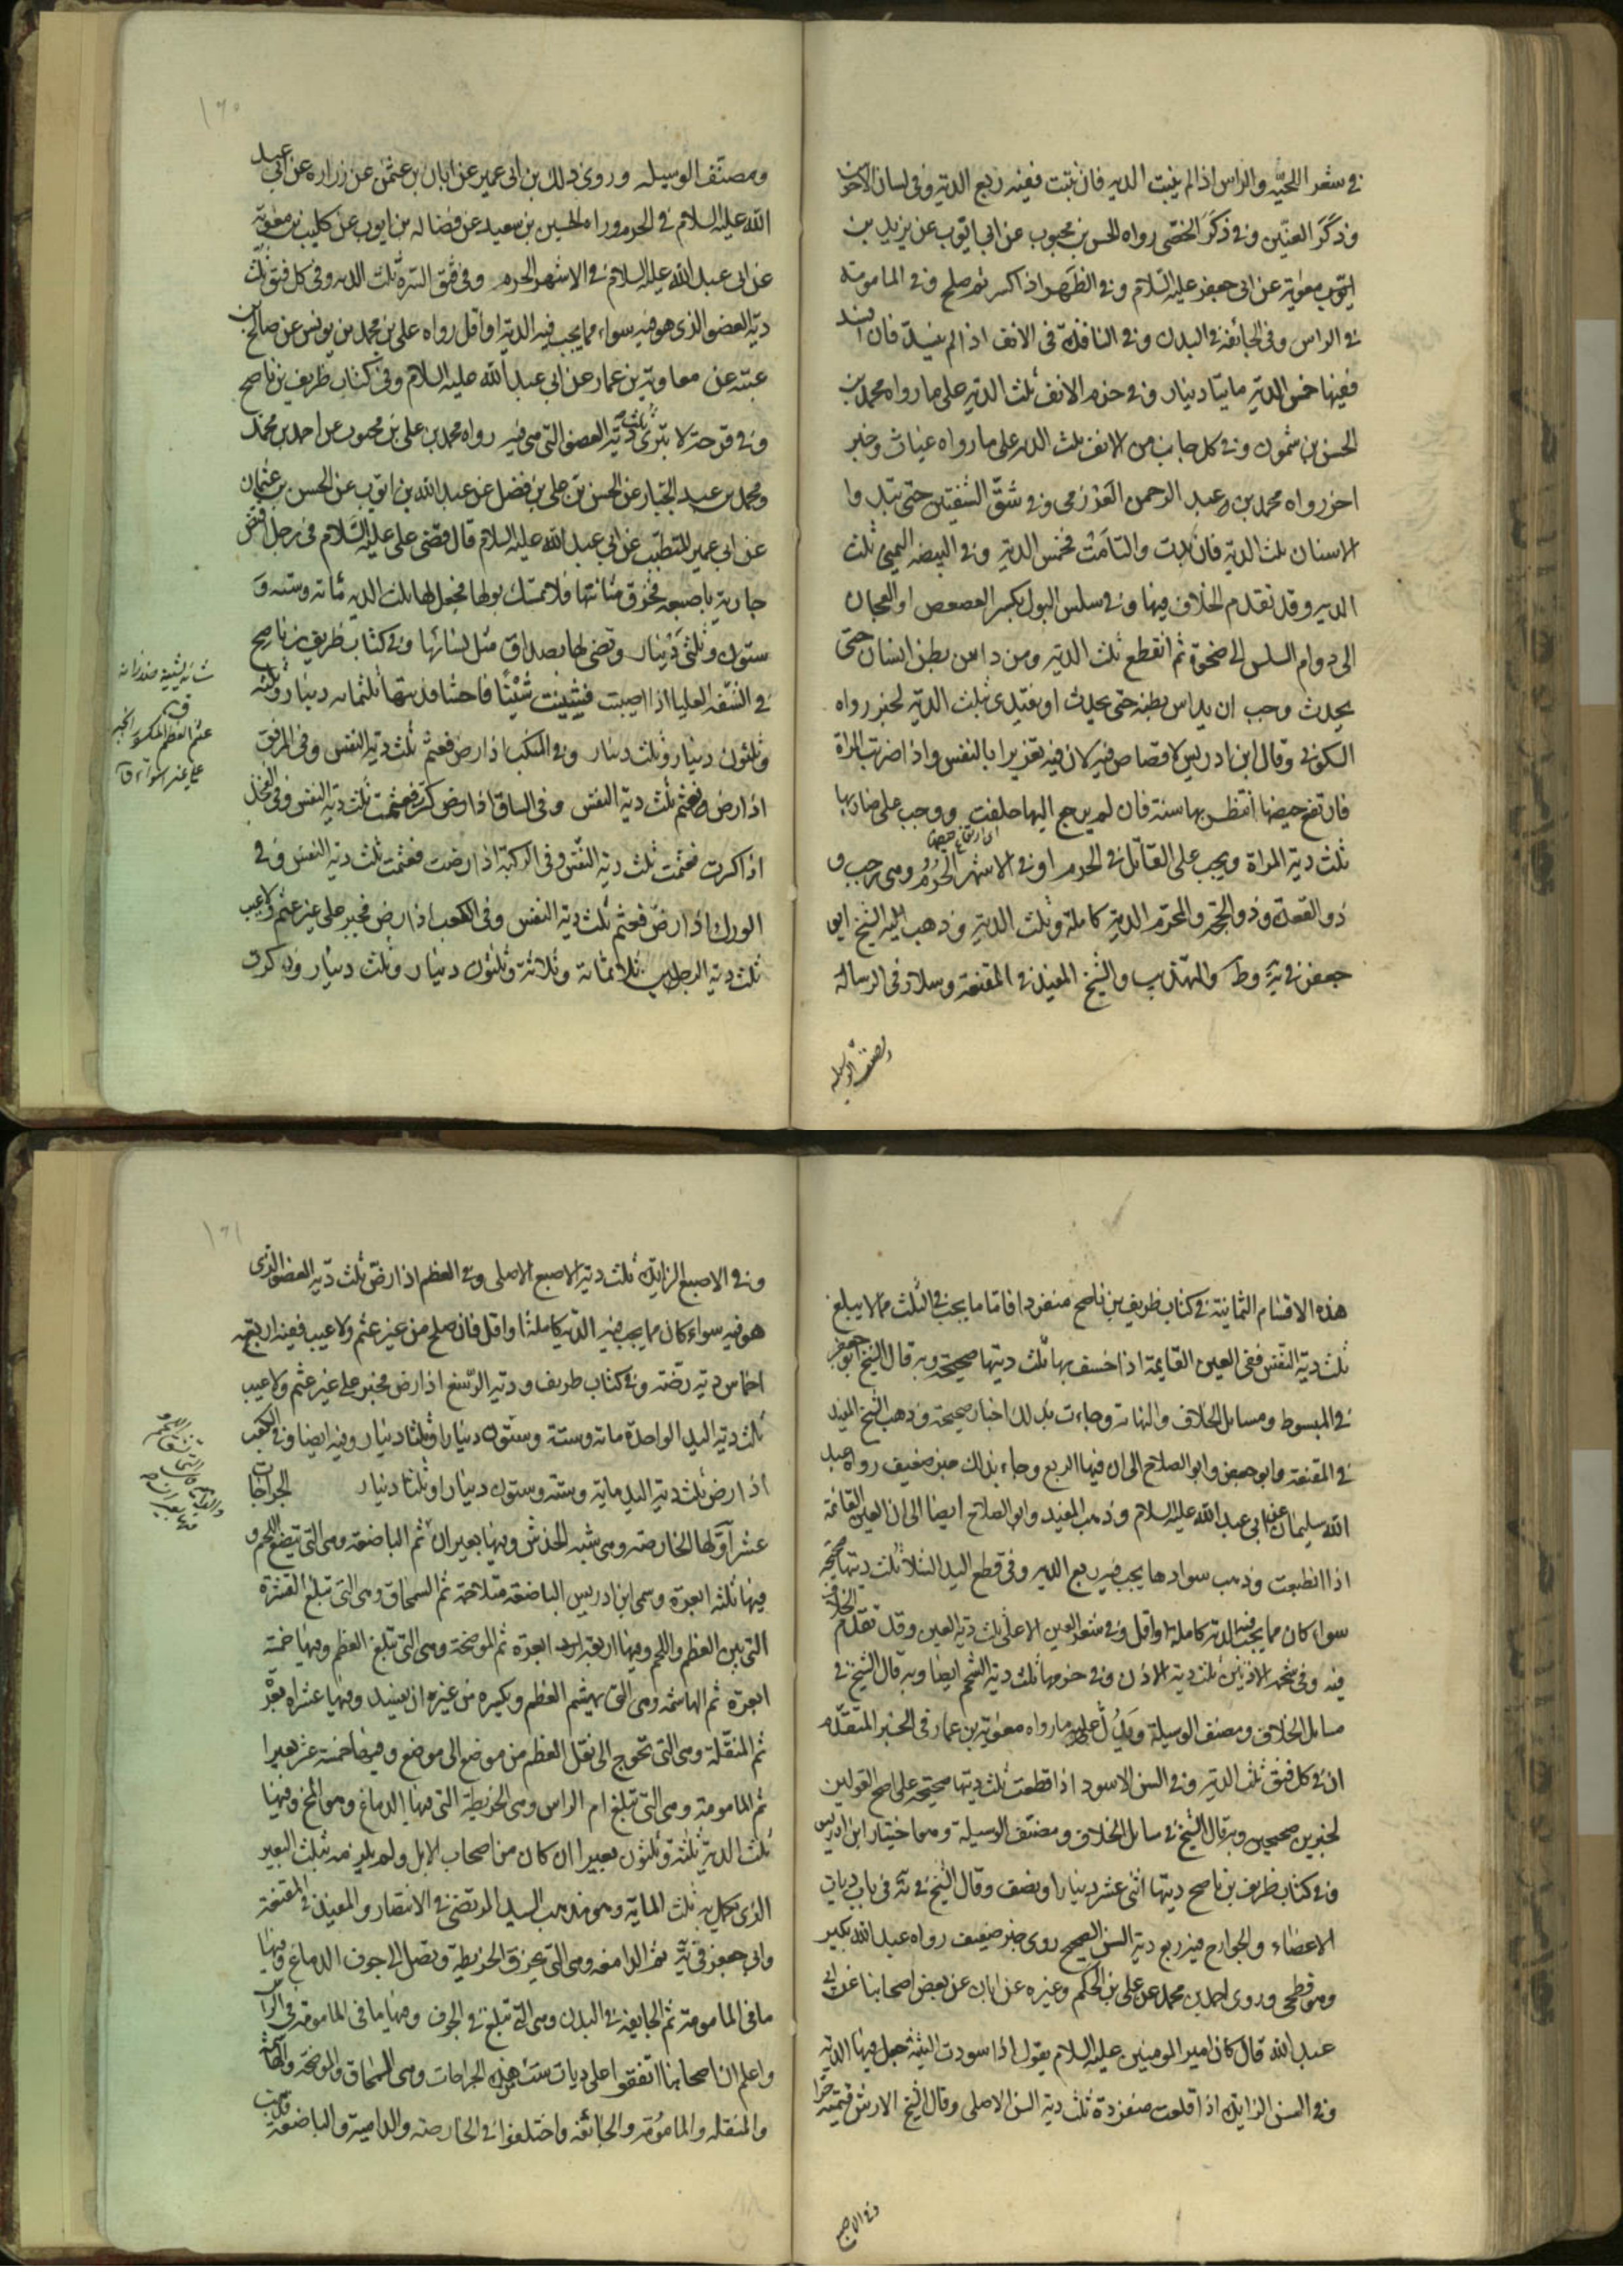 في شعر اللحية والراس اذا لم ينبت الدية فان نبتت ففيه ربع الدية وفي لسان الاخرس
وذكر العنين وفي ذكر الخصى رواه الحسن بن محبوب عن ابي ايوب عن بريد بن
معوية عن ابي جعفر عليه السلام وفي الظهر اذا كسر ثم صلح وفي المامومة
في الراس وفي الجائفة في البدن وفي النافذة في الانف اذا لم ينسد فان انسد
ففيها خمس الدية مايتا دينار وفي خرم الانف ثلث الدية على ما رواه محمد بن
الحسن بن شمون وفي كل جانب من الانف ثلث الديه على ما رواه غياث وخبر
اخر رواه محمد بن عبد الرحمن العزرمى وفي شق الشفتين حتى تبدوا
الاسنان ثلث الدية فان والتأمت فخمس الدية وفي البيضه اليمنى ثلث
الديه وقد تقدم الخلاف فيها وفي سلس البول بكسر العصعص او العجان
الى دوام السلس الى ضحوة ثم انقطع ثلث الدية ومن داس بطن انسان حتى
يحدث وجب ان يداس بطنه حتى يحدث او يفتدى بثلث الدية لخبر رواه
السكوني وقال ابن ادريس لا قصاص فيه لان فيه تغريرا بالنفس واذا ضربت المراة
فارتفع حيضها انتظر بها سنة فان لم يرجع اليها حلفت ووجب على ضاربها
اى ارتفاع حيضها
ثلث دية المراة ويجب على القاتل في الحرم او في الاشهر الحرم وهى رجب و
ذو القعدة وذو الحجة والمحرم الدية كاملة وثلث الدية وذهب اليه الشيخ ابو
جعفر في ية وط والتهذيب والشيخ المفيد في المقنعة وسلار في الرسالة
ومصنف الوسيله
ومصنف الوسيله وروى ذلك بن ابي عمير عن ابان بن عثمن عن زرارة عن ابي عبد
الله عليه السلام في الحرم ورواه الحسين بن سعيد عن فضاله بن ايوب عن كليب بن معوية
عن ابي عبد الله عليه السلام في الاشهر الحرم وفي فتق السرة ثلث الديه وفي كل فتق ثلث
دية العضو الذى هو فيه سواء مما يجب فيه الدية او اقل رواه على بن محمد بن يونس عن صالح بن
عقبة عن معاوية بن عمار عن ابي عبد الله عليه السلام وفي كتاب ظريف بن ناصح
وفي قرحة لا تبرئ ثلث دية العضو التي هي فيه رواه محمد بن على بن محبوب عن احمد بن محمد
ومحمد بن عبد الجبار عن الحسن بن على بن فضل عن عبد الله بن ايوب عن الحسن بن عثمان
عن ابي عمير المتطبب عن ابي عبد الله عليه السلام قال قضى على عليه السلام في رجل افتض
جارية باصبعه فخرق مثانتها فلا تمسك بولها فجعل لها ثلث الديه مائه وسته و
ستون وثلثى دينار وقضى لها بصداق مثل نسائها وفي كتاب ظريف بن ناصح
في الشفه العليا اذا اصيبت فشينت شينا فاحشا فديتها ثلثمائه دينار وثلثه
وثلثون دينار وثلث دينار وفي المنكب اذا رض فعثم ثلث دية النفس وفي المرفق
اذا رض فعثم ثلث دية النفس وفي الساق اذا رض كسر فعثمت ثلث دية النفس وفي الفخذ
اذا كسرت فعثمت ثلث دية النفس وفي الركبة اذا رضت فعثمت ثلث دية النفس وفي
الورك اذا رض فعثم ثلث دية النفس وفي الكعب اذا رض فجبر على غير عثم ولا عيب
ثلث دية الرجلين ثلاثمائة وثلاثة وثلثون دينار وثلث دينار وذكر في
عثم العظم المكسور انجبر
على غير استواء ق
هذه الاقسام الثمانية في كتاب ظريف بن ناصح منفردا فاما ما يجب في الثلث مما لا يبلغ
ثلث دية النفس ففى العين القايمة اذا خسف بها ثلث ديتها صحيحة وبه قال الشيخ ابو جعفر
في المبسوط ومسايل الخلاف والنهاية وجاءت بذلك اخبار صحيحة وذهب الشيخ المفيد
في المقنعة وابو جعفر وابو الصلاح الى ان فيها الربع وجاء بذلك خبر ضعيف رواه عبد
الله سليمان عن ابي عبد الله عليه السلام وذهب المفيد وابو الصلاح ايضا الى ان العين القائمة
اذا انطبعت وذهب سوادها يجب فيه ربع الديه وفي قطع اليد الشلا ثلث ديتها صحيحة
سواء كان مما يجب فيه الدية كاملة او اقل وفي شفر العين الاعلى ثلث دية العين وقد تقدم الخلاف
فيه وفي شحمة الاذنين ثلث دية الاذن وفي خرمها ثلث دية الشحم ايضا وبه قال الشيخ في
مسايل الخلاف ومصنف الوسيلة ويدل عليه ما رواه معوية بن عمار في الخبر المتقدم
ان في كل فتق ثلث الدية وفي السن الاسود اذا قطعت ثلث ديتها صحيحة على اصح القولين
لخبرين صحيحين وبه قال الشيخ في مسائل الخلاف ومصنف الوسيلة وهما اختيار ابن ادريس
وفي كتاب ظريف بن ناصح ديتها اثنى عشر دينارا ونصف وقال الشيخ في ية في باب ديات
الاعضاء والجوارح فيه ربع دية السن الصحيح روى خبر ضعيف رواه عبد الله بكير
وهو فطحى وروى احمد بن محمد عن على بن الحكم وغيره عن ابان عن بعض اصحابنا عن ابي
عبد الله قال كان امير المومنين عليه السلام يقول اذا اسودت الثنية جعل فيها الدية
وفي السن الزايدة اذا قلعت منفردة ثلث دية السن الاصلى وقال الشيخ الارش قيمته حرا
وفي الاصبع
وفي الاصبع الزايدة ثلث دية الاصبع الاصلى وفي العظم اذا رض ثلث دية العضو الذى
هو فيه سواء كان مما يجب فيه الدية كاملة او اقل فان صلح من غير عثم ولا عيب ففيه اربعة
اخماس دية رضه وفي كتاب ظريف ودية الرسغ اذا رض فجبر على غير عثم ولا عيب
ثلث دية اليد الواحدة مائه وستة وستون دينارا وثلثا دينار وفيه ايضا وفي الكعب
اذا رض ثلث دية اليد ماية وسته وستون دينارا وثلثا دينار الجراحات
عشر اولها الخارصه وهى شبه الخدش وفيها بعير ان ثم الباضعه وهى التي تبضع اللحم و
فيها ثلثه ابعرة وسمى ابن ادريس الباضعة متلاحمة ثم السمحاق وهى التى تبلغ القشرة
التي بين العظم واللحم وفيها اربعة ابعرة ثم الموضحة وهى التى تبلغ العظم وفيها خمسة
ابعرة ثم الهاشمة وهى التي يهشم العظم ويكسره من غير ان يفسد وفيها عشرة ابعرة
ثم المنقلة وهى التى تحوج الى نقل العظم من موضع الى موضع وفيها خمسة عشر بعيرا
ثم المامومة وهى التي تبلغ ام الراس وهى الخريطة التي فيها الدماغ وهو المخ وفيها
ثلث الدية ثلثة وثلثون بعيرا ان كان من اصحاب الابل ولم يلزمه ثلث البعير
الذى يكمل به ثلث الماية وهو مذهب السيد المرتضى في الانتصار والمفيد في المقنعة
وابي جعفر في ية ثم الدامغه وهى التى تخرق الخريطة وتصل الى جوف الدماغ وفيها
ما في المامومة ثم الجايفه في البدن وهى التي تبلغ في الجوف وفيها ما في المامومة في الراس
واعلم ان اصحابنا اتفقوا على ديات ست من هذه الجراحات وهى السمحاق والموضحة والهاشمة
والمنقله والمامومة والجائفه واختلفوا في الخارصه والدامية والباضعة